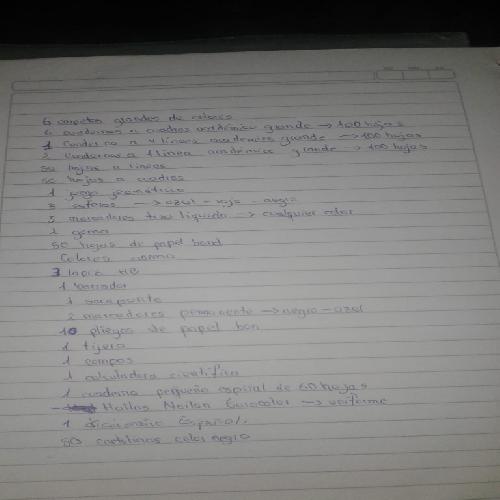 6 carpetas grandes de colores
6 cuadernos a cuadros académico grande → 100 hojas
1 Cuaderno a 4 lineas academico grande → 100 hojas
2 Cuadernos a 1 linea académico grande → 100 hojas
50 hojas a lineas
50 hojas a cuadros
1 juego geométrico
3 esferos → azul - rojo - negro
3 marcadores tiza liquida → cualquier color
1 goma
50 hojas de papel bond
Colores norma
3 lapiz HB
1 borrador
1 sacapunta
2 marcadores permanente → negro - azul
10 pliegos de papel bon
1 tijera
1 compas
1 calculadora cientifica
1 cuaderno pequeño espiral de 60 hojas
→ uniforme
1 diccionario Español.
80 cartulinas color negro